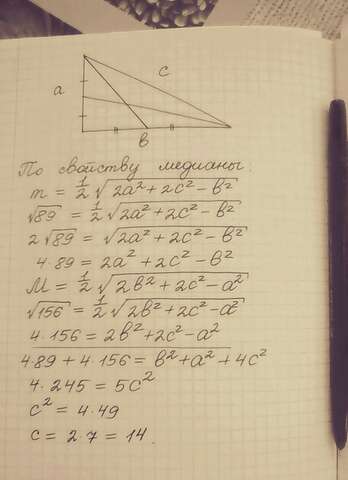 a
c
b
По свойству медианы:
m = 1/2 √(2a² + 2c² − b²)
√89 = 1/2 √(2a² + 2c² − b²)
2√89 = √(2a² + 2c² − b²)
4·89 = 2a² + 2c² − b²
M = 1/2 √(2b² + 2c² − a²)
√156 = 1/2 √(2b² + 2c² − a²)
4·156 = 2b² + 2c² − a²
4·89 + 4·156 = b² + a² + 4c²
4·245 = 5c²
c² = 4·49
c = 2·7 = 14.